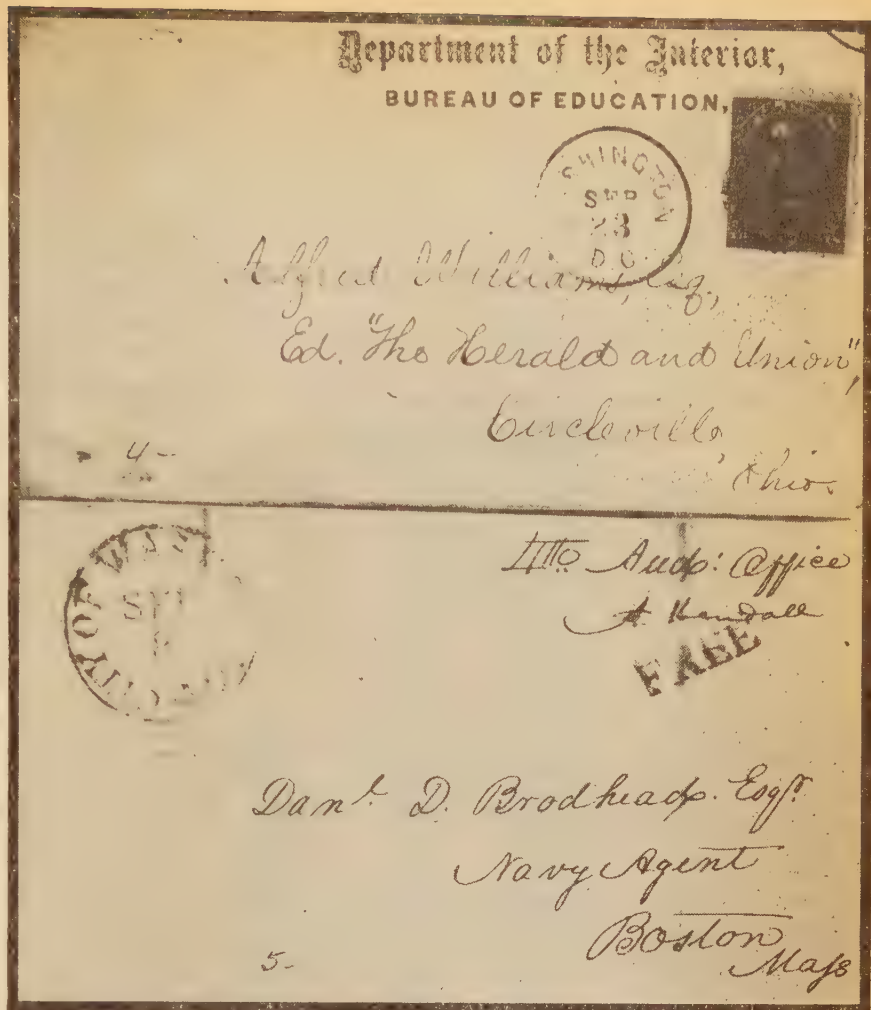 Department of the Interior,
BUREAU OF EDUCATION,
SHINGTON
SEP
23
D.C.
Alfred Williams, Esq,
Ed. "The Herald and Union",
Circleville,
Ohio.
4-
CITY OF WASH
4th Aud: Office
A Kendall
FREE
Danl. D. Brodhead. Esqr.
Navy Agent
Boston
Mass
5-